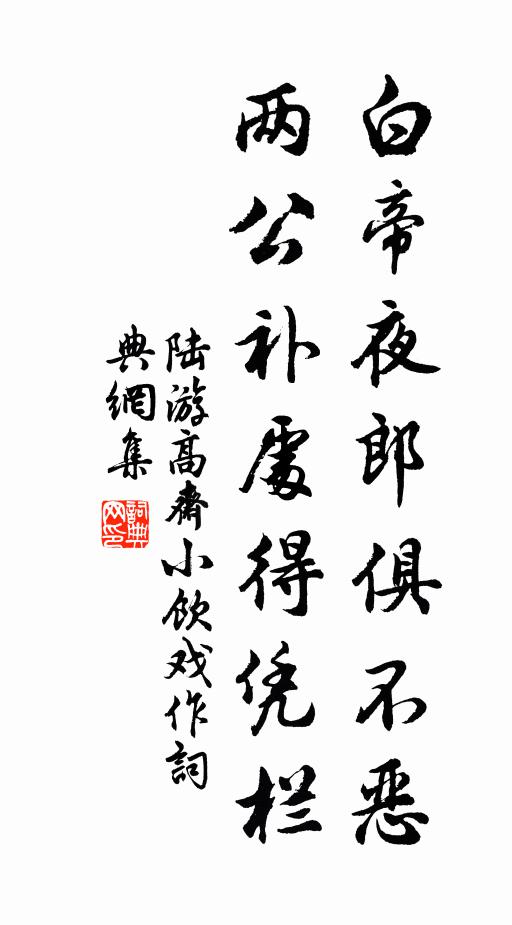 白帝夜郎俱不恶
两公补處得凭栏
陆游高齋小飲戏作詞
典網集
詞典网印